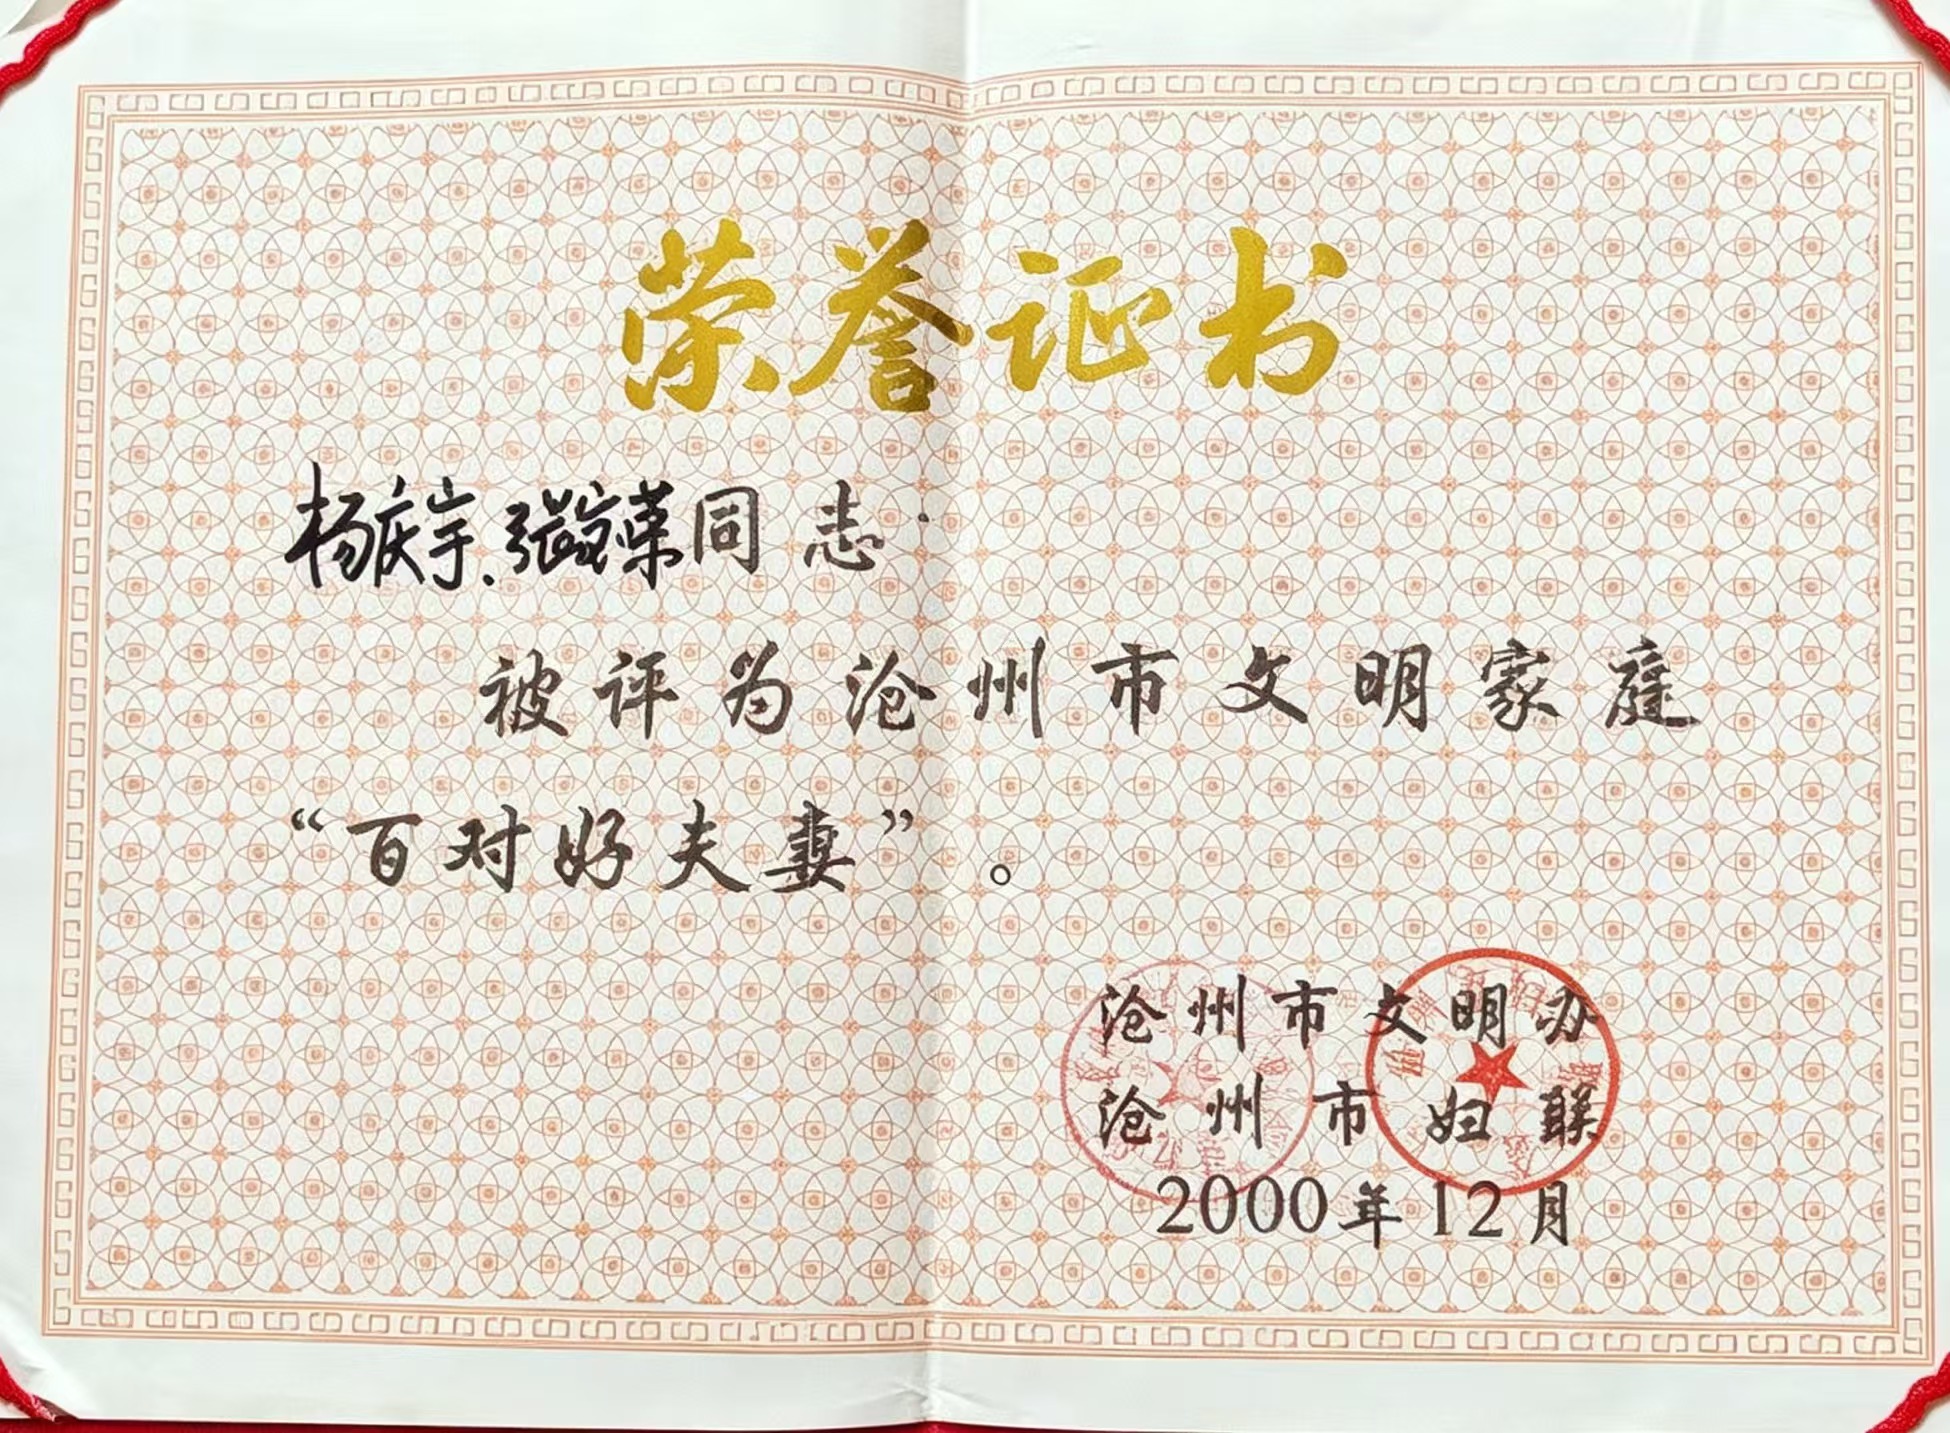 荣誉证书
杨庆宇、张宝荣同志:
被评为沧州市文明家庭
“百对好夫妻”。
沧州市文明办
沧州市妇联
2000年12月